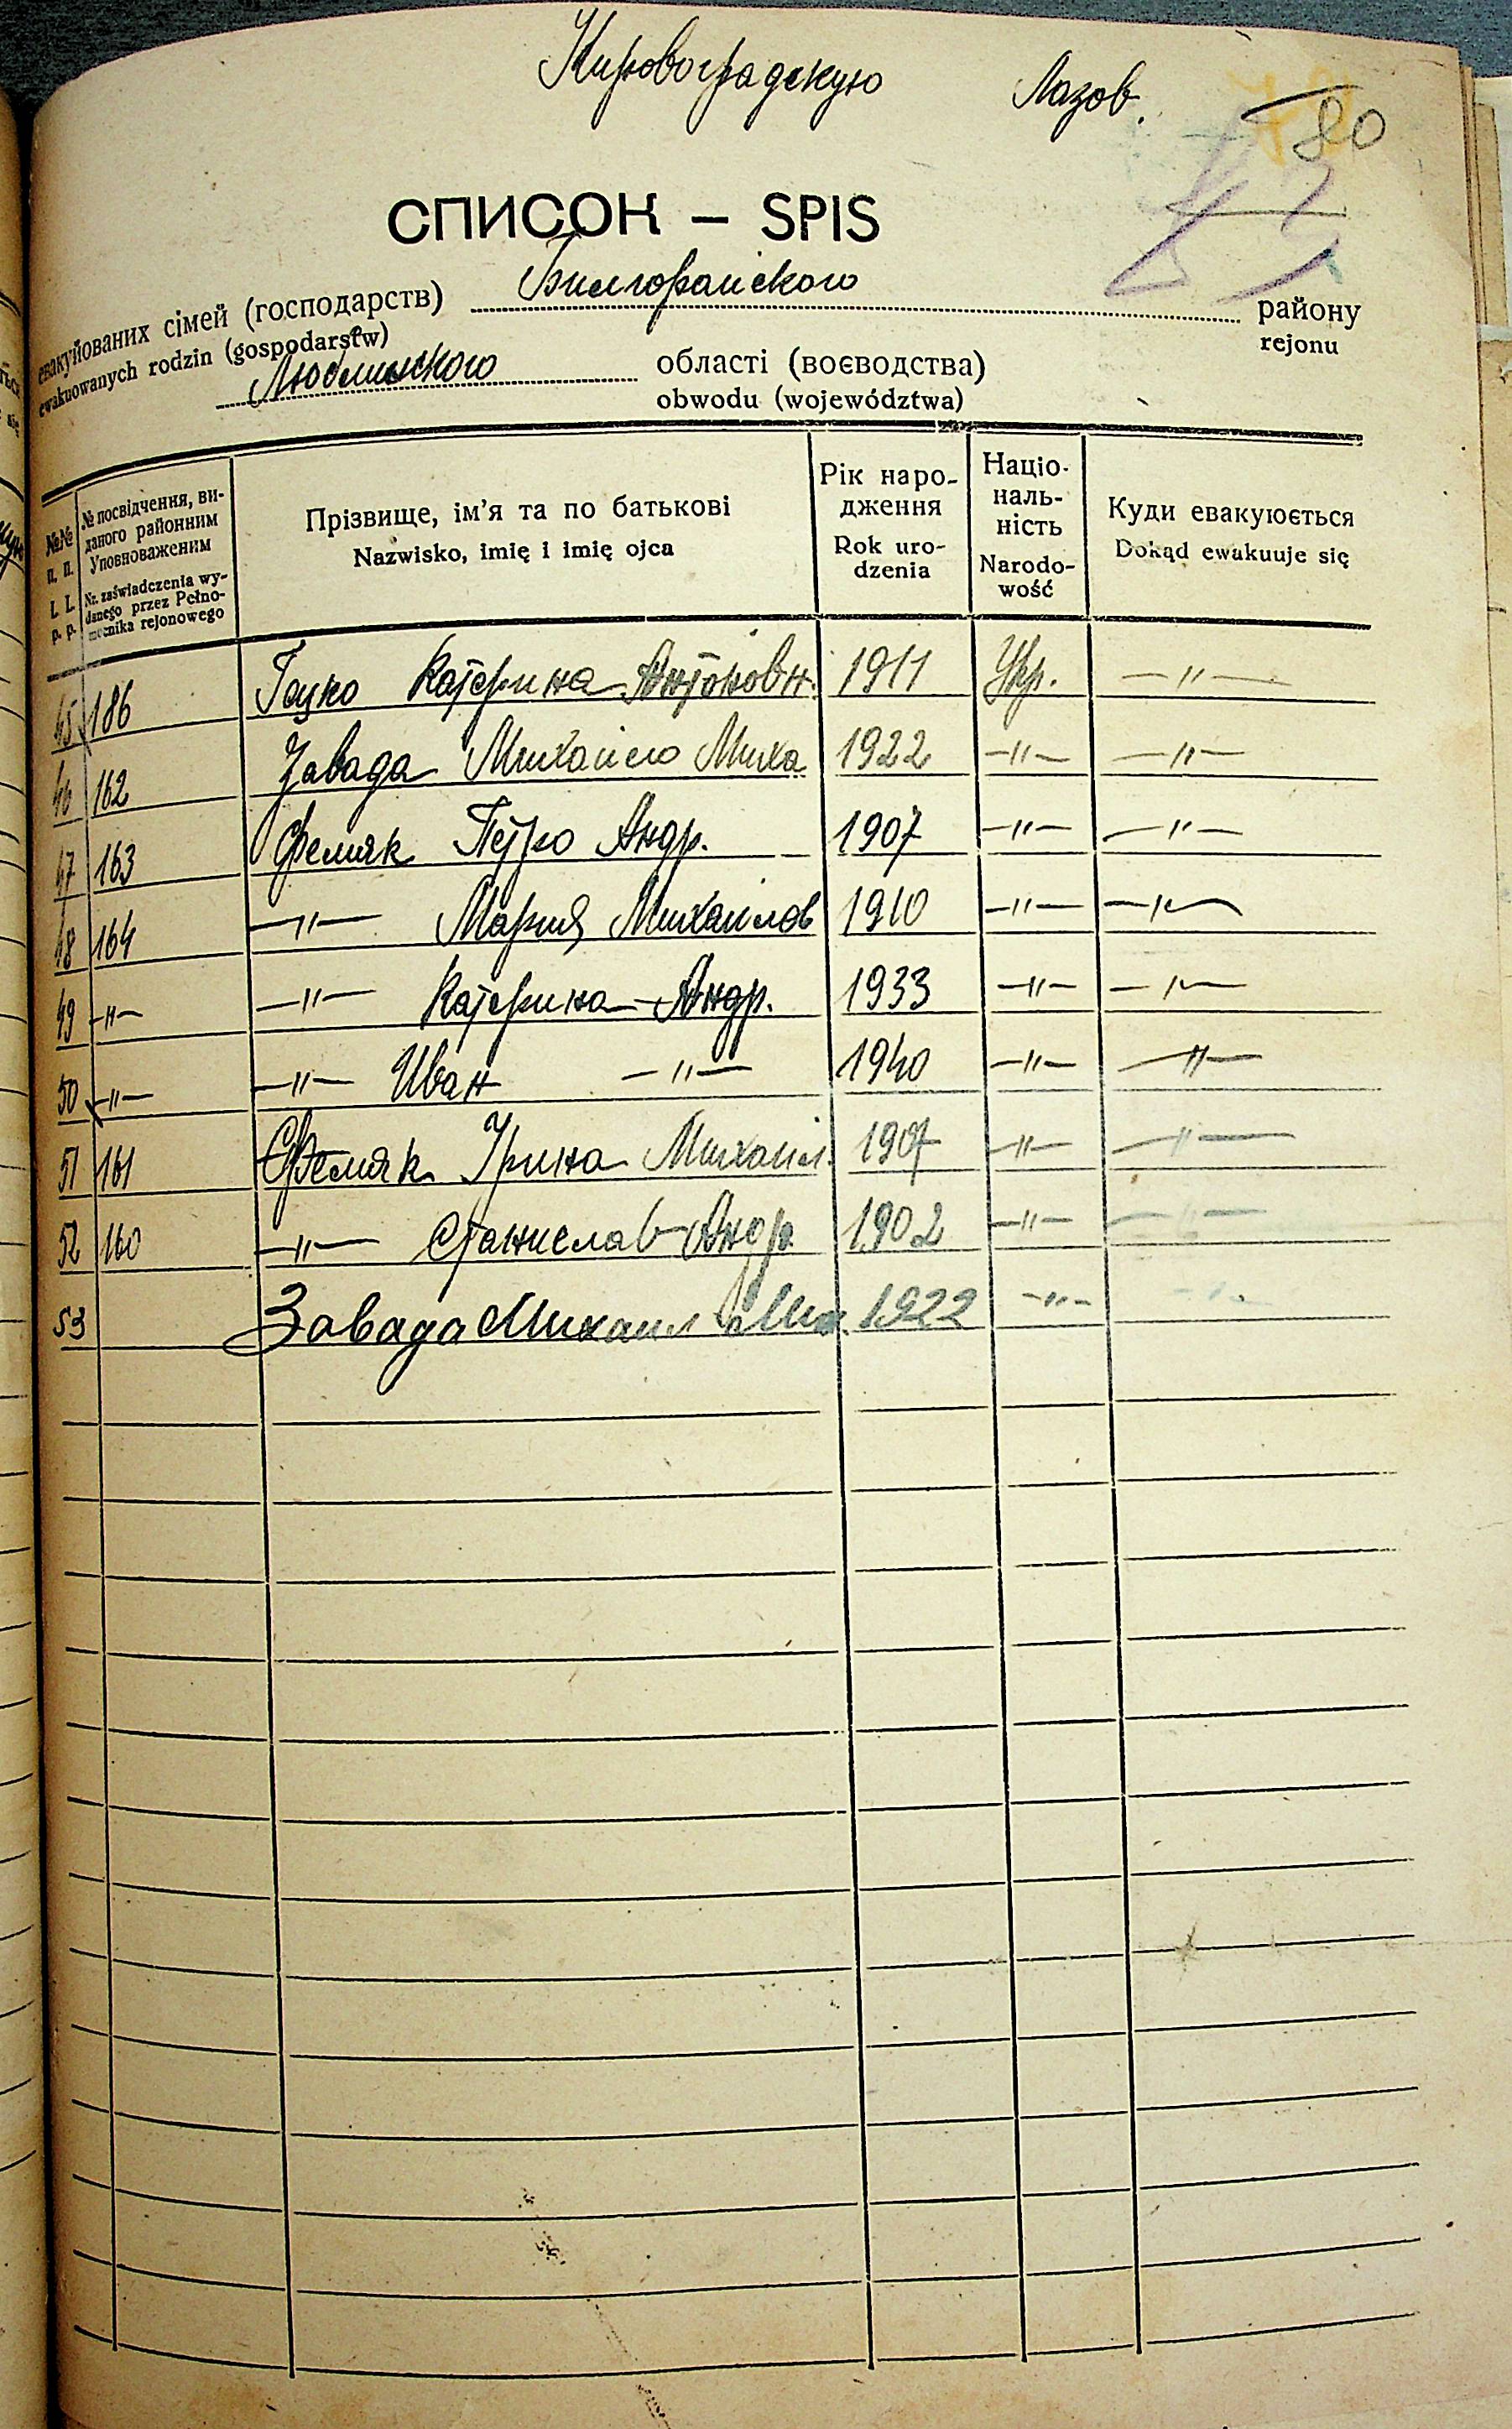 Кировоградскую Лазов.
80
СПИСОК — SPIS
евакуйованих сімей (господарств) Билгорайского району
ewakuowanych rodzin (gospodarstw) rejonu
Люблинского області (воєводства)
obwodu (województwa)
№№ п. п. L. L. p. p.
№ посвідчення, виданого районним Уповноваженим
Nr. zaświadczenia wydanego przez Pełnomocnika rejonowego
Прізвище, ім'я та по батькові
Nazwisko, imię i imię ojca
Рік народження
Rok urodzenia
Національність
Narodowość
Куди евакуюється
Dokąd ewakuuje się
45 186 Гацко Катерина Антоновн. 1911 Укр. —"—
46 162 Завада Михайло Миха 1922 —"— —"—
47 163 Фемяк Петро Андр. 1907 —"— —"—
48 164 —"— Мария Михайлов 1910 —"— —"—
49 —"— —"— Катерина Андр. 1933 —"— —"—
50 —"— —"— Иван —"— 1940 —"— —"—
51 161 Фемяк Ірина Михайл. 1907 —"— —"—
52 160 —"— Станислав Андр 1902 —"— —"—
53 Завада Михаил Мих. 1922 —"— —"—